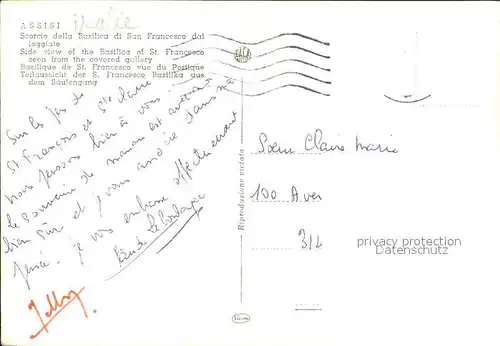 ASSISI
Italie
Scorcio della Basilica di San Francesco dal
loggiato
Side view of the Basilica of St. Francesco
seen from the covered gallery
Basilique de St. Francesco vue du Portique
Teilaussicht der S. Francesco Basilika aus
dem Säulengang
Sur les pas de
St François et Ste Claire
nous pensons bien à vous.
Le souvenir de maman est avec nous
bien sûr et j'vous associe dans ma
pensée. Je vous embrasse affectueusement
Riproduzione vietata
Soeur Claire Marie
100 Aver
privacy protection
Datenschutz